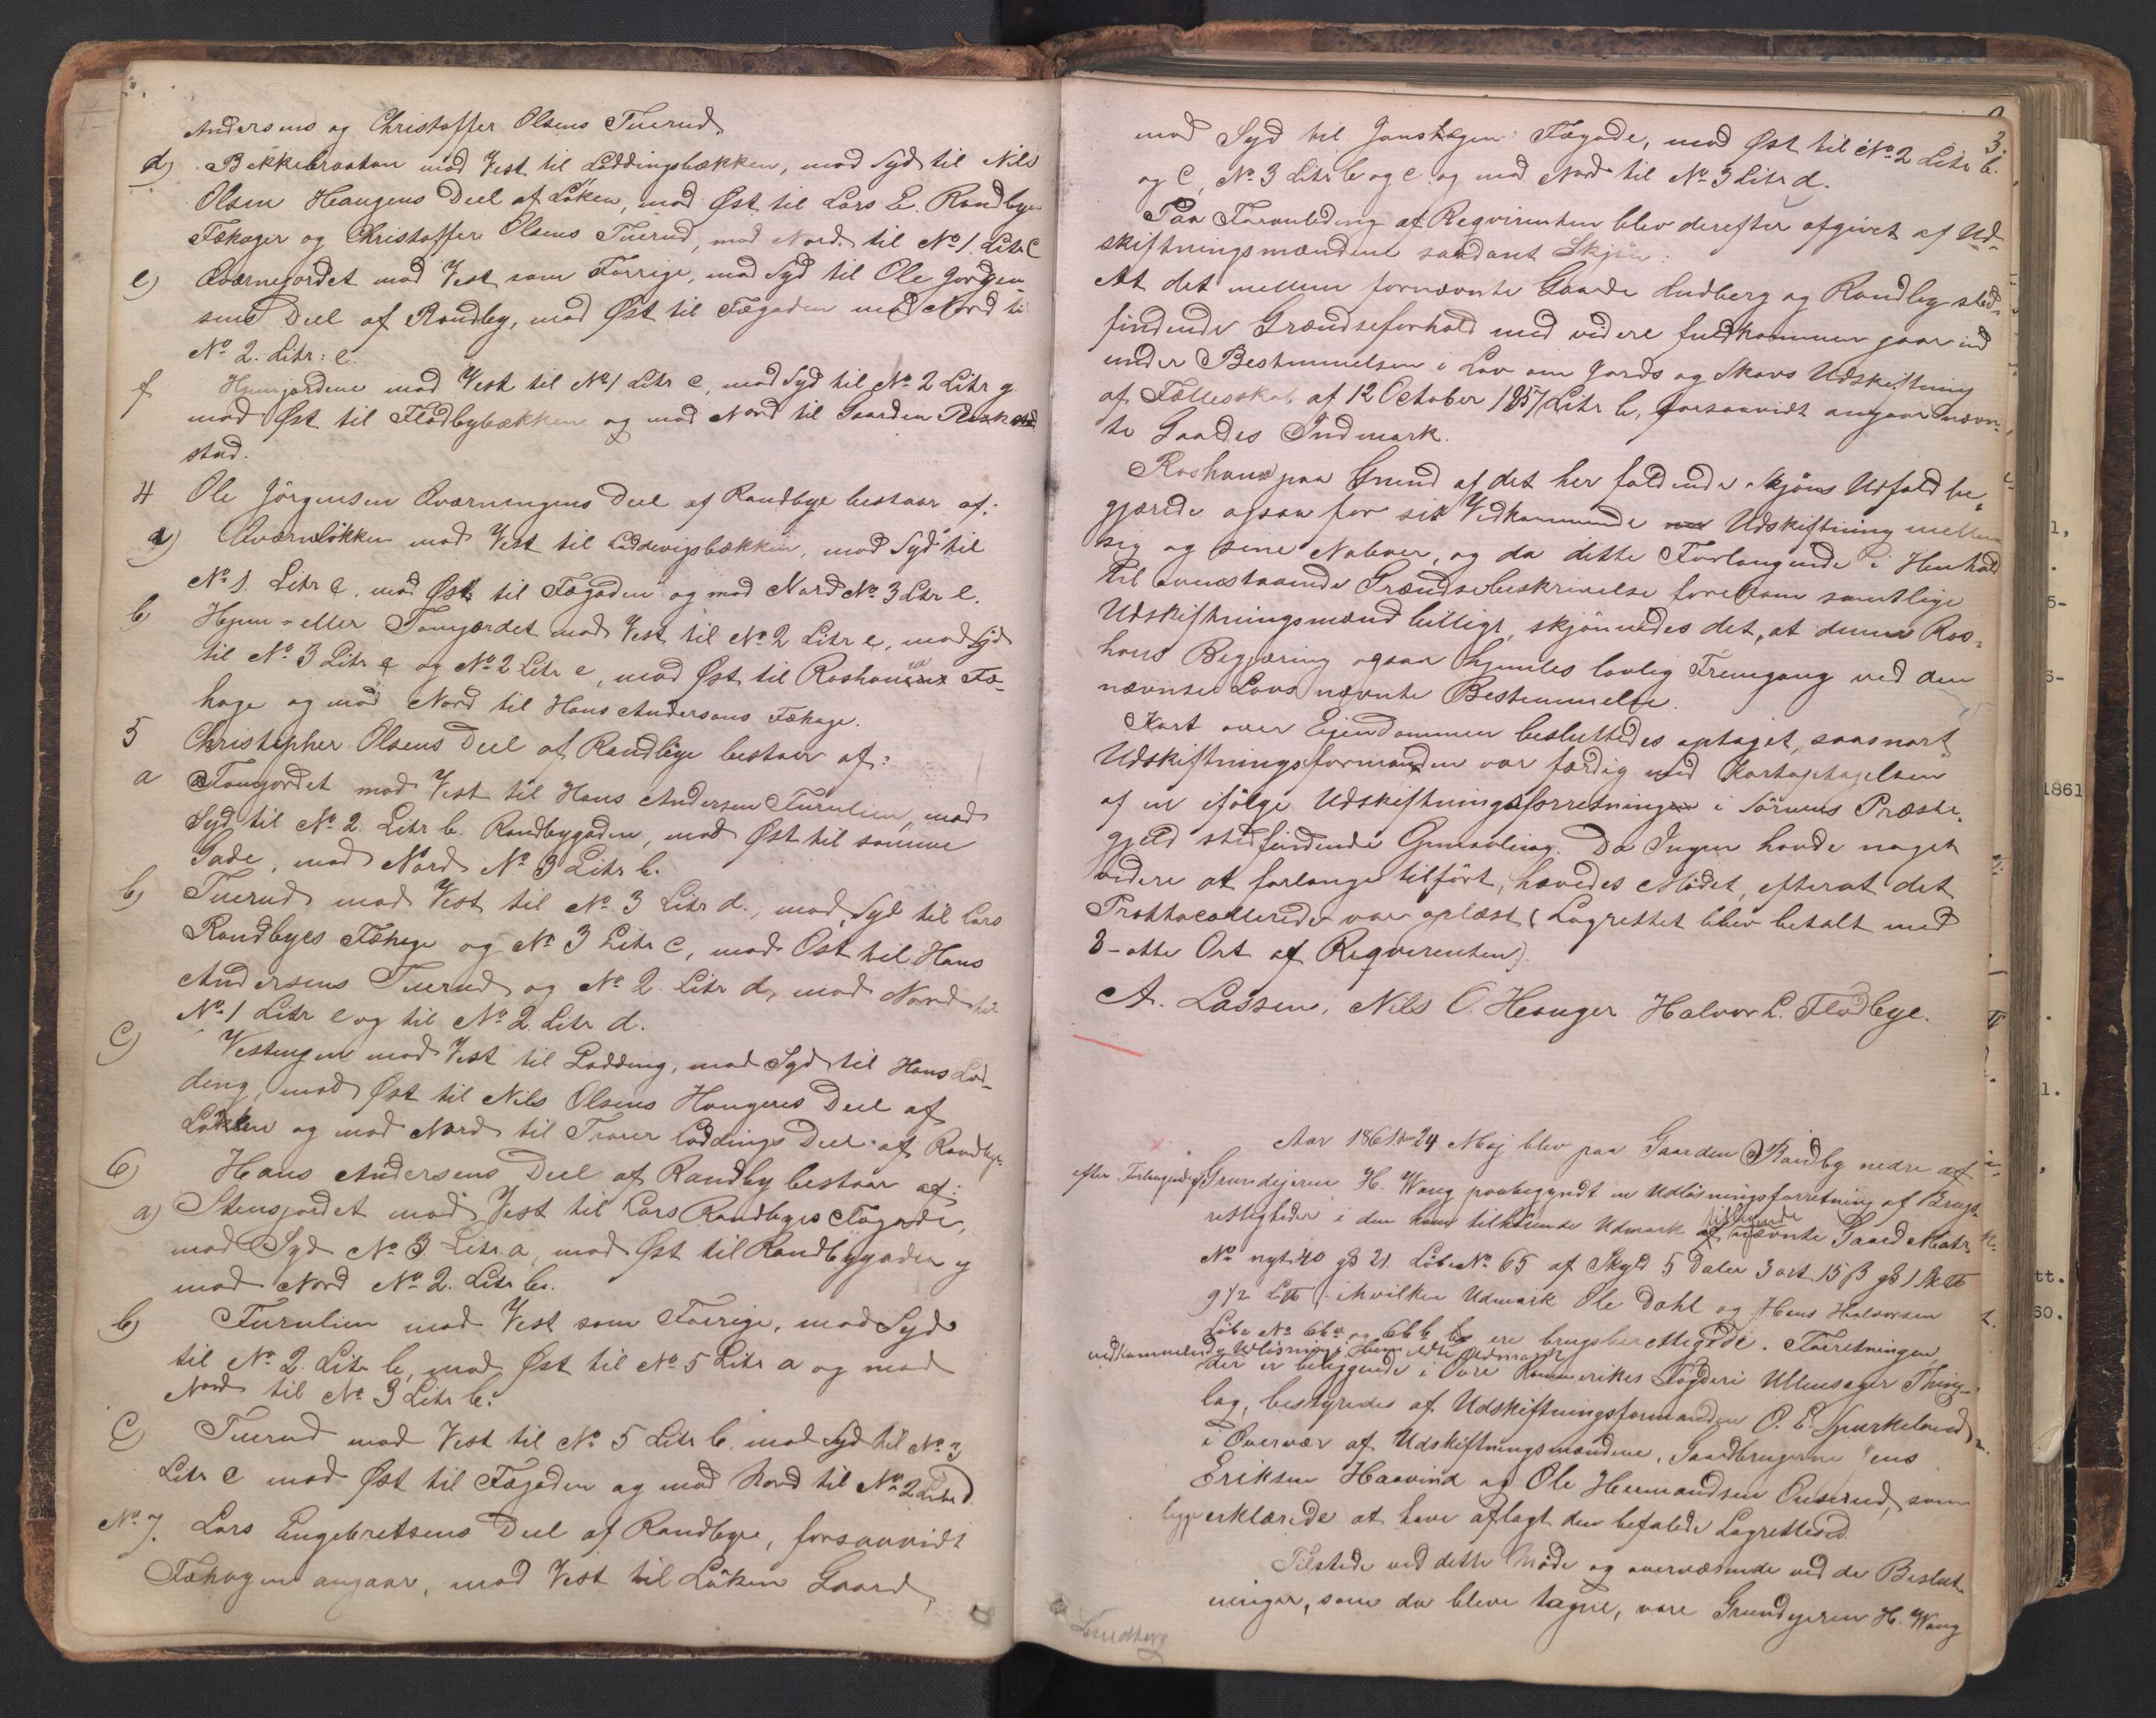 Andersens og Christoffer Olsens Tuerud
d) Bekkebraatan mod Vest til Loddingsbækken, mod Syd til Nils
Olsen Haugens Deel af Løken, mod Øst til Lars E. Randbyes
Fæhager og Christoffer Olsens Tuerud, mod Nord til No 1. Litr C
e) Qværnejordet mod Vest som Forrige, mod Syd til Ole Jørgen-
sens Deel af Randby, mod Øst til Fægaden mod Nord til
No 2. Litr: e.
f Hjemjordene mod Vest til No 1 Litr c, mod Syd til No 2 Litr g.
mod Øst til Flodbybækken og mod Nord til Gaarden
stad.
4 Ole Jörgensen Qværnengens Deel af Randbye bestaar af:
a) Qværnløkken mod Vest til Loddevigsbækken, mod Syd til
No 1. Litr e, mod Øst til Fægaden og mod Nord No 3 Litr e.
b Hjem- eller Tomjordet mod Vest til No 2 Litr e, mod Syd
til No 3 Litr a og No 2 Litr e, mod Øst til Roshaus Fæ-
hage og mod Nord til Hans Andersens Fæhage.
5 Christopher Olsens Deel af Randbye bestaar af:
a Tomjordet mod Vest til Hans Andersen Furulien, mod
Syd til No 2. Litr b. Randbygaden, mod Øst til samme
Gade, mod Nord No 3 Litr b.
b) Tuerud mod Vest til No 3 Litr d., mod Syd til Lars
Randbyes Fæhage og No 3 Litr C, mod Öst til Hans
Andersens Tuerud og No 2. Litr d, mod Nord til
No 1 Litr e og til No 2. Litr d.
C) Vestengen mod Vest til Lodding, mod Syd til Hans Lod-
ding, mod Øst til Nils Olsens Haugeres Deel af
Løkken og mod Nord til Loddings Deel af Randbye
6) Hans Andersens Deel af Randby bestaar af:
a) Stensjordet mod Vest til Lars Randbyes Fægade,
mod Syd No 3 Litr a, mod Øst til Randbygaden og
mod Nord No 2. Litr b.
b) Furulien mod Vest som Forrige, mod Syd
til No 2. Litr b, mod Øst til No 5 Litr a og mod
Nord til No 3 Litr b.
C) Tuerud mod Vest til No 5 Litr b. mod Syd til No 3
Litr C mod Øst til Fægaden og mod Nord til No 2 Litr d.
No 7. Lars Engebretsens Deel af Randbye, forsaavidt
Fæhagen angaar, mod Vest til Løken Gaard,
3.
mod Syd til Fægade, mod Øst til No 2 Litr b.
og C, No 3 Litr b og c og mod Nord til No 3 Litr d.
Paa Foranledning af Reqvirenten blev derefter afgivet af Ud-
skiftningsmændene saadant Skjøn:
At det mellem fornævnte Gaarde Lundberg og Randby sted-
findende Grændseforhold med videre fuldkommen gaar ind
under Bestemmelsen i Lov om Jords og Skovs Udskiftning
af Fællesskab af 12 October 1857 Litr b, forsaavidt angaar nævn-
te Gaardes Indmark.
Roshaus paa Grund af det her faldende Skjøns Udfald be-
gjærede ogsaa for sit Vedkommende Udskiftning mellem
sig og sine Naboer, og da dette Forlangende i Henhold
til ovenstaaende Grændsebeskrivelse forekom samtlige
Udskiftningsmænd billigt, skjønnedes det, at denne Ros-
haus Begjæring ogsaa hjemles lovlig Fremgang ved den
nævnte Lovs nævnte Bestemmelse.
Kart over Eiendommen besluttedes optaget, saasnart
Udskiftningsformanden var færdig med Kartoptagelsen
af en ifølge Udskiftningsforretningen i Sørums Præste-
gjeld stedfindende Opmaaling. Da Ingen havde noget
videre at forlange tilført, hævedes Mødet, efterat det
Prottocollerede var oplæst (Lagrettet blev betalt med
8 - otte Ort af Reqvirenten).
A. Lassen. Nils O. Hauger Halvor L. Flodbye.
Aar 1861 den 24 Maj blev paa Gaarden Risby nedre af
efter Forlangende af Grundejeren H. Wang paabegyndt en Udløsningsforretning af Brugs-
rettigheder i den ham tilhørende Udmark tilhørende nævnte Gaard Matr.
No nyt 40 gl 21 Løbe No 65 af Skyld 5 Daler 3 ort 15 β gl 1 Sk℔
9 1/2 L℔, i hvilken Udmark Ole Dahl og Hans Halvorsen
Løbe No 66a og 66b ere brugsberettigede. Forretningen
vedkommende Udløsning i Udmark
der er beliggende i Øvre Romerikes Fogderi Ullensager Thing-
lag, bestyredes af Udskiftningsformanden O. E. Spurkeland
i Overvær af Udskiftningsmændene, Gaardbrugerne Jens
Eriksen Haavind og Ole Hermandsen Onsrud, som
begge erklærede at have aflagt den befalede Lagrettesed.
Tilstede ved dette Møde og overværende ved de Beslut-
ninger, som da bleve tagne, vare Grundejeren H. Wang
Lundberg
1861